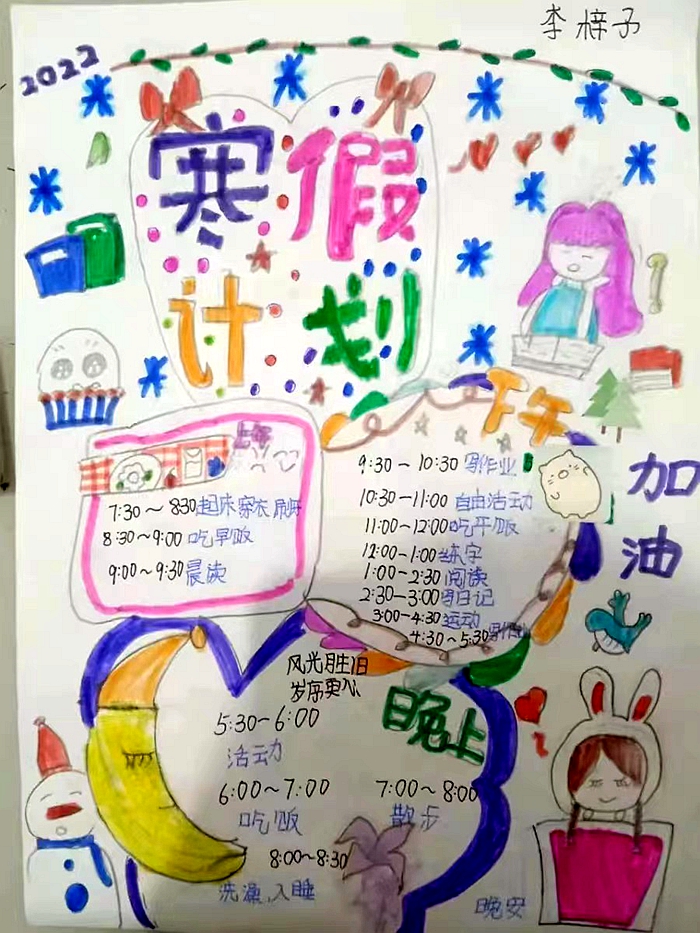 李梓予
2022
寒假
计划
上午
7:30～830起床穿衣刷牙
8:30～9:00 吃早饭
9:00～9:30晨读
下午
9:30－10:30 写作业
10:30－11:00 自由活动
11:00－12:00吃午饭
12:00－1:00练字
1:00－2:30 阅读
2:30－3:00写日记
3:00－4:30运动
4:30～5:30写作业
加
油
风光胜旧
岁序更心
晚上
5:30－6:00
活动
6:00～7:00
吃饭
7:00～8:00
散步
8:00～8:30
洗澡、入睡
晚安